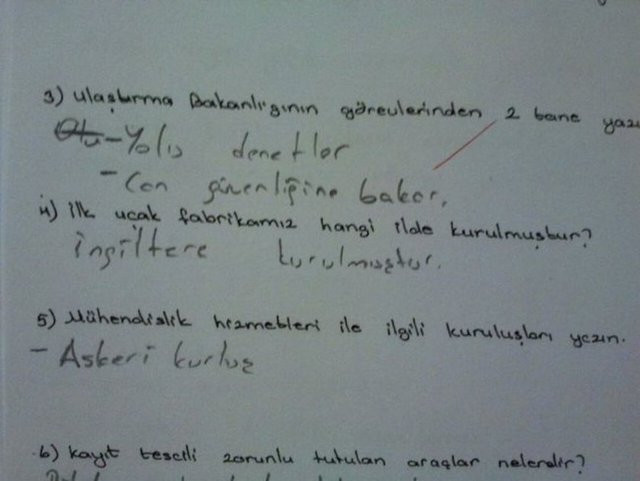 3) Ulaştırma Bakanlığının görevlerinden 2 tane yazı
-Yolu denetler
-Can güvenliğine bakar.
4) İlk uçak fabrikamız hangi ilde kurulmuştur?
İngiltere kurulmuştur.
5) Mühendislik hizmetleri ile ilgili kuruluşları yazın.
- Askeri kurluş
6) Kayıt tescili zorunlu tutulan araçlar nelerdir?